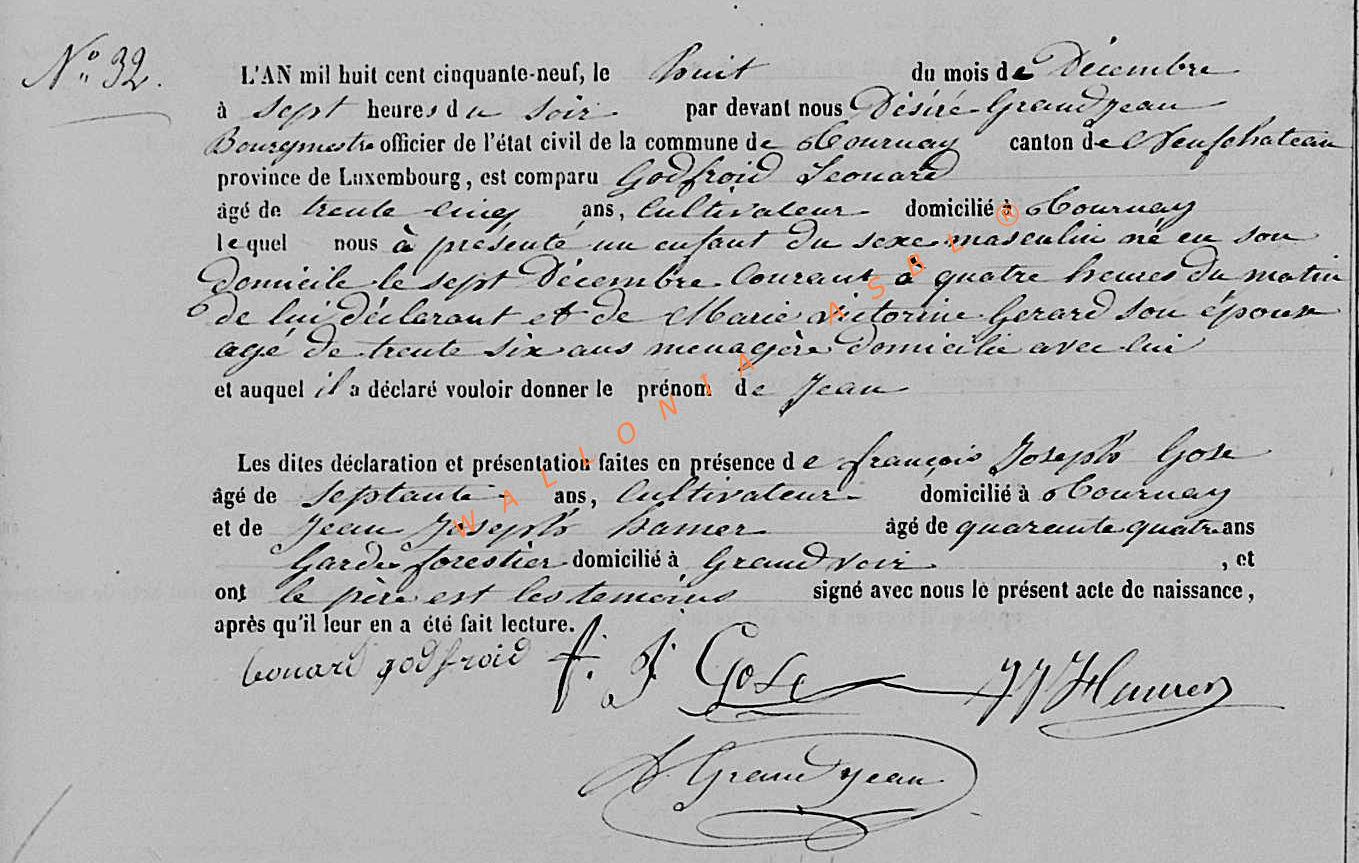 N° 32.
L'AN mil huit cent cinquante-neuf, le huit du mois de Décembre
à sept heures du soir par devant nous Désiré Grandjean
Bourgmestre officier de l'état civil de la commune de Tournay canton de Neufchateau
province de Luxembourg, est comparu Godfroid Leonard
âgé de trente cinq ans, Cultivateur domicilié à Tournay
lequel nous à présenté un enfant du sexe masculin né en son
domicile le sept Décembre Courant à quatre heures du matin
de lui déclarant et de Marie Victorine Gerard son épouse
agé de trente six ans menagère domicilié avec lui
et auquel il a déclaré vouloir donner le prénom de Jean
Les dites déclaration et présentation faites en présence de françois Joseph Gose
âgé de septante ans, Cultivateur domicilié à Tournay
et de Jean Joseph hamer âgé de quarente quatre ans
Garde forestier domicilié à Grandvoir , et
ont le père est les temoins signé avec nous le présent acte de naissance,
après qu'il leur en a été fait lecture.
Leonard godfroid f. J Gose JJ Hamer
D Grandjean
WALLONIA ASBL ®